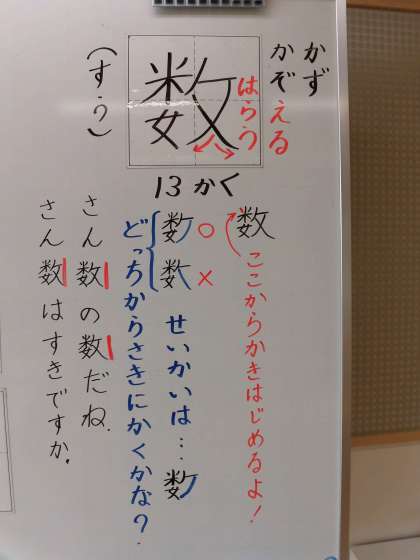 かず
かぞえる
数
はらう
(すう)
13かく
数
ここからかきはじめるよ!
数 ○
数 ×
せいかいは…数
どっちからさきにかくかな?
さん数の数だね.
さん数はすきですか.